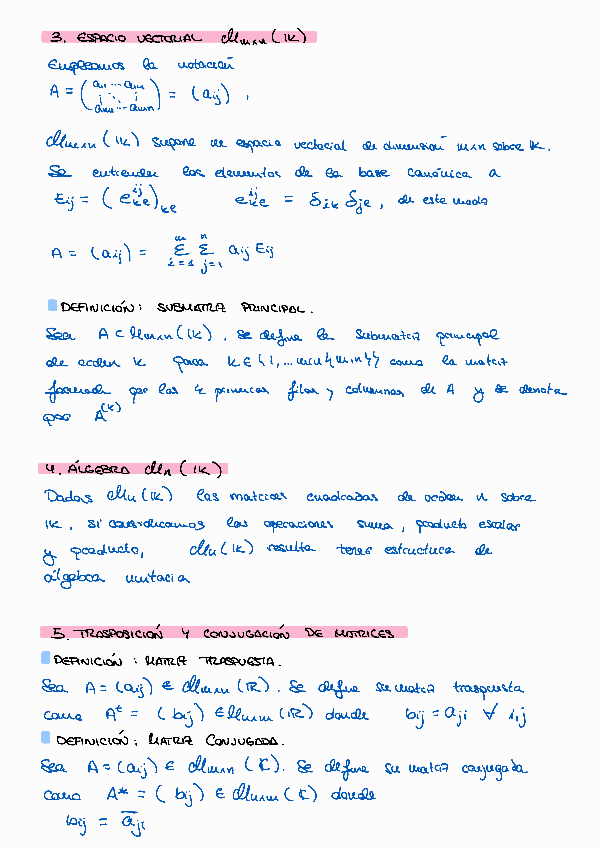 3. ESPACIO VECTORIAL Mmxn (K)
Empleamos la notación
A = ( a11 ... a1n / am1 ... amn ) = (aij),
Mmxn (K) supone un espacio vectorial de dimensión m×n sobre K.
Se entienden los elementos de la base canónica a
Eij = (e^ij_kl)kl e^ij_kl = δik δjl, de este modo
A = (aij) = Σ_{i=1}^{m} Σ_{j=1}^{n} aij Eij
DEFINICIÓN: SUBMATRIZ PRINCIPAL.
Sea A ∈ Mmxn (K). Se define la submatriz principal
de orden k para k ∈ {1, ... min{m,n}} como la matriz
formada por las k primeras filas y columnas de A y se denota
por A^(k)
4. ÁLGEBRA Mn (K)
Dadas Mn (K) las matrices cuadradas de orden n sobre
K, si consideramos las operaciones suma, producto escalar
y producto, Mn (K) resulta tener estructura de
álgebra unitaria
5. TRASPOSICIÓN Y CONJUGACIÓN DE MATRICES
DEFINICIÓN: MATRIZ TRASPUESTA.
Sea A = (aij) ∈ Mmxn (R). Se define su matriz traspuesta
como A^t = (bij) ∈ Mnxm (R) donde bij = aji ∀ i,j
DEFINICIÓN: MATRIZ CONJUGADA.
Sea A = (aij) ∈ Mmxn (C). Se define su matriz conjugada
como A* = (bij) ∈ Mnxm (C) donde
bij = a̅ji